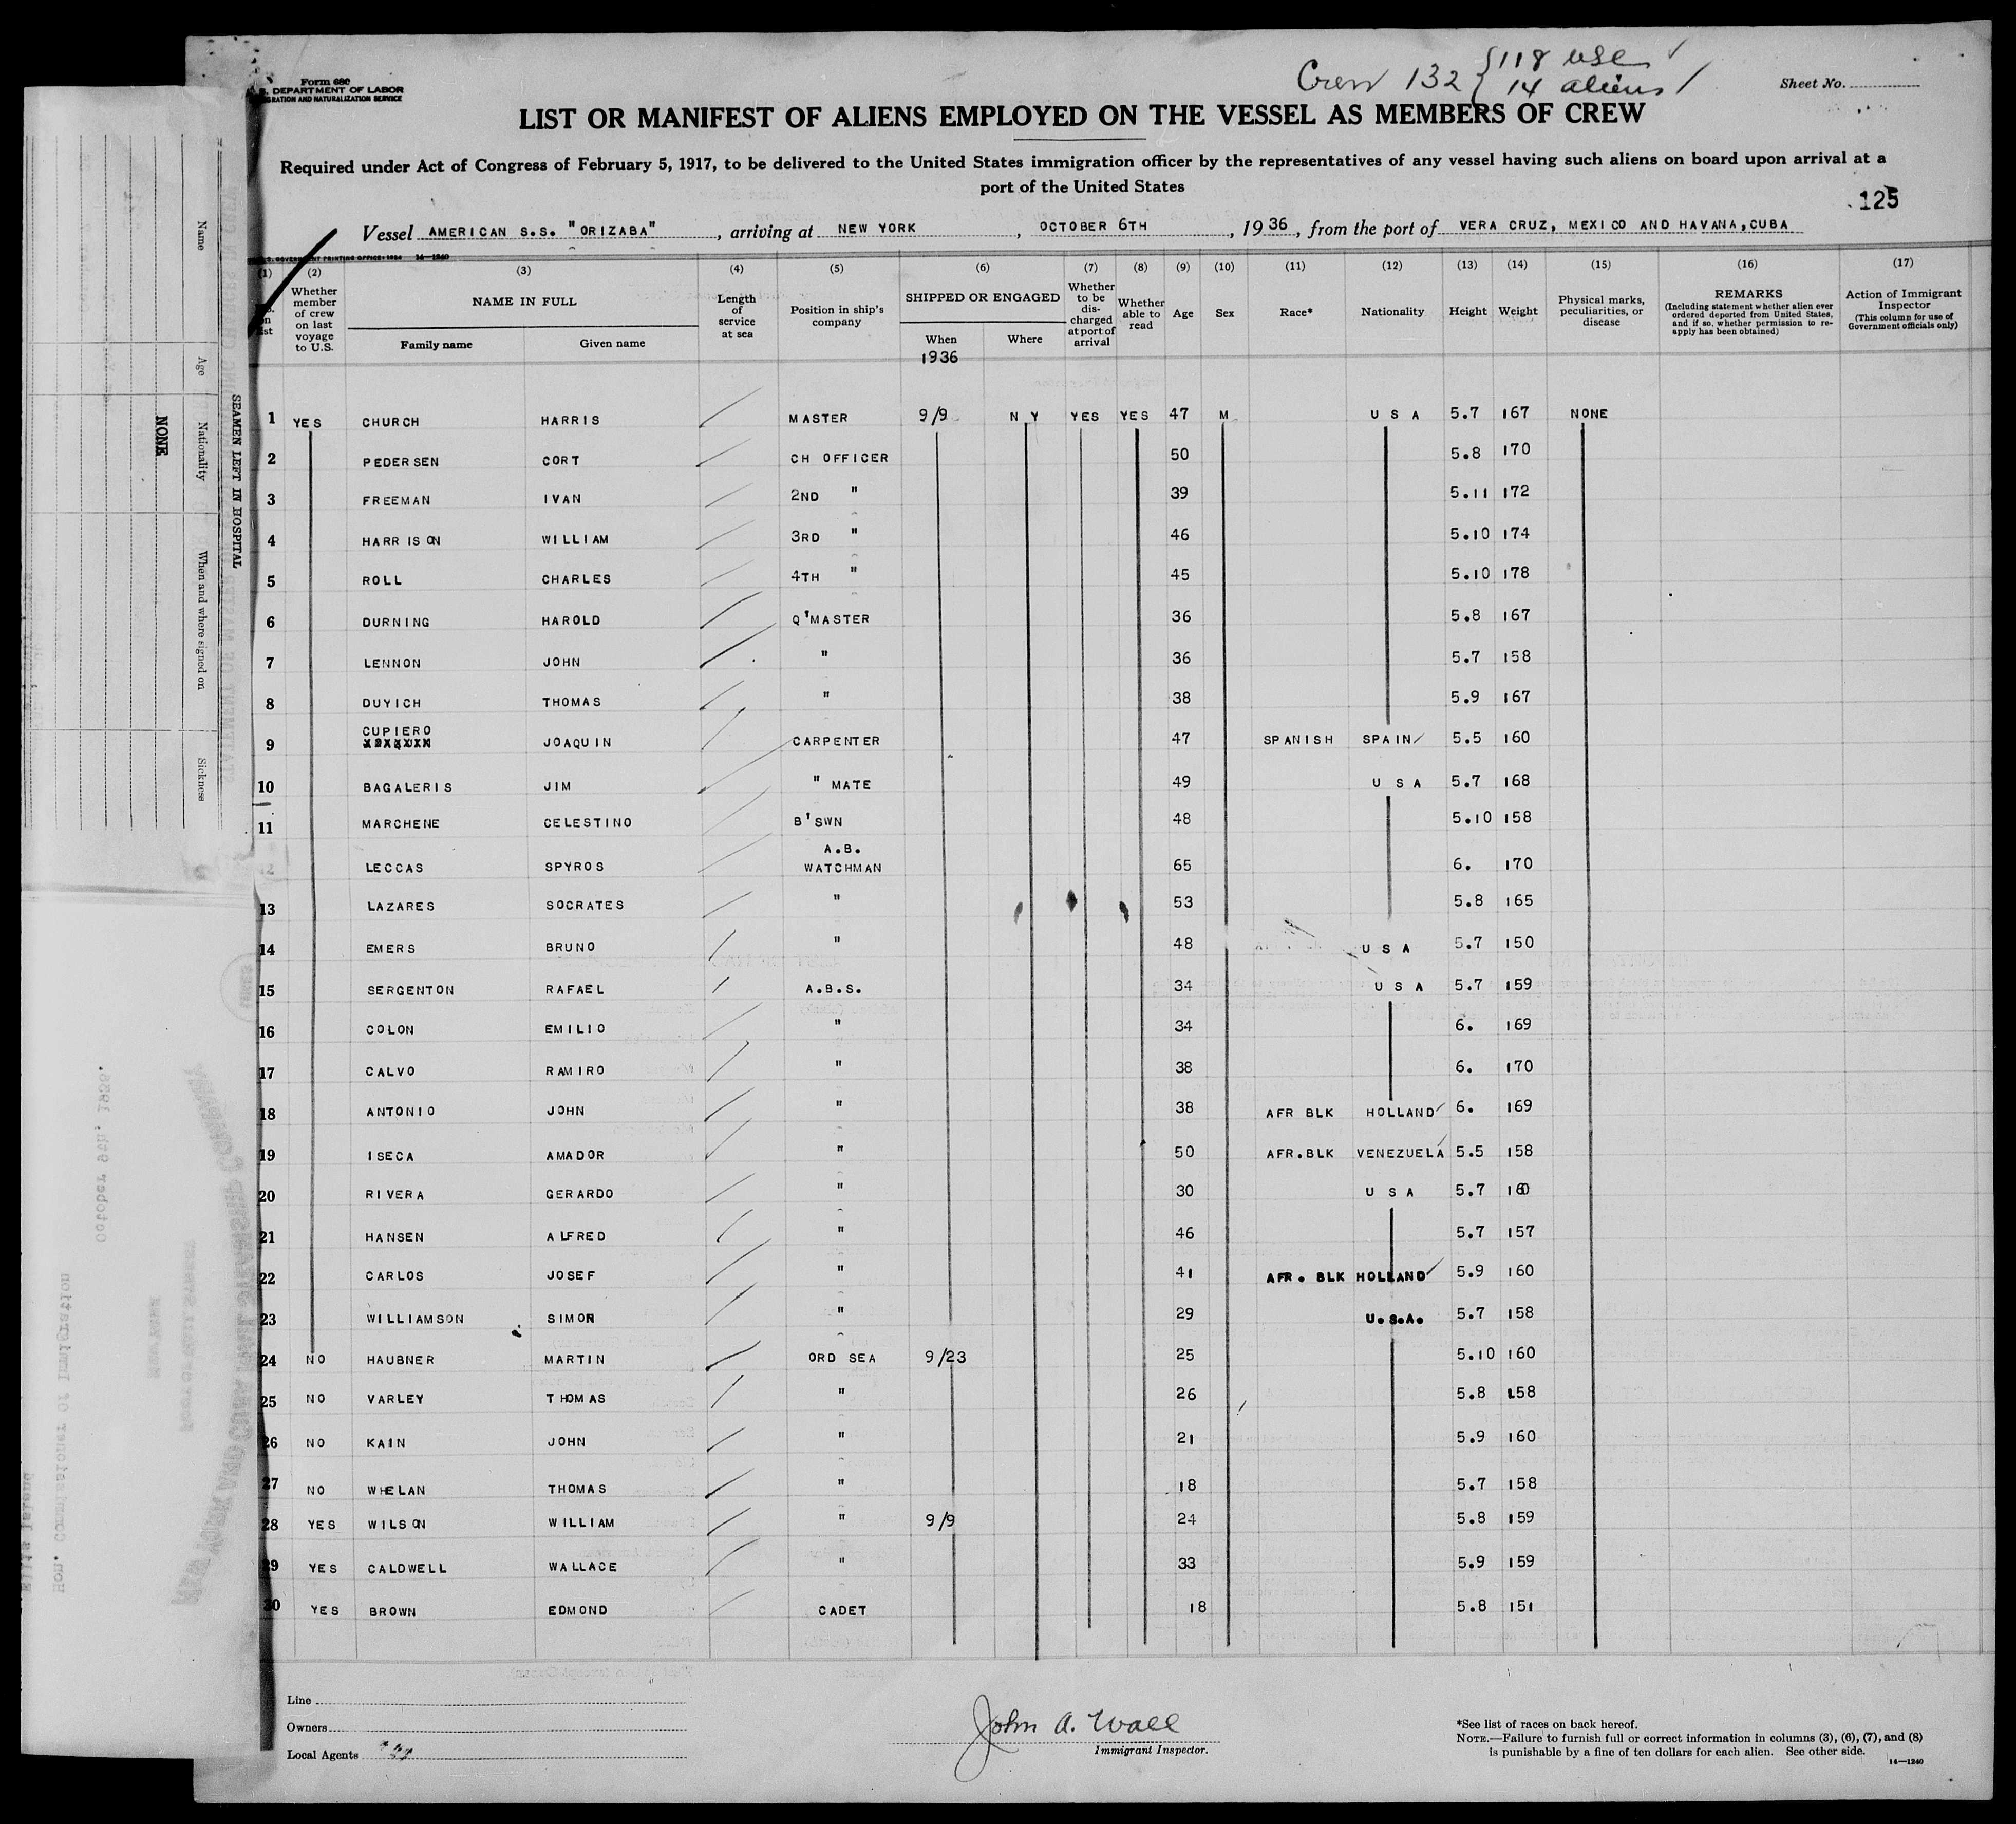 Form 680
DEPARTMENT OF LABOR
IMMIGRATION AND NATURALIZATION SERVICE
Crew 132 { 118 USC
14 aliens
Sheet No.
LIST OR MANIFEST OF ALIENS EMPLOYED ON THE VESSEL AS MEMBERS OF CREW
Required under Act of Congress of February 5, 1917, to be delivered to the United States immigration officer by the representatives of any vessel having such aliens on board upon arrival at a
port of the United States
125
Vessel AMERICAN S.S. "ORIZABA", arriving at NEW YORK, OCTOBER 6TH, 1936, from the port of VERA CRUZ, MEXICO AND HAVANA, CUBA
(1) (2) (3) (4) (5) (6) (7) (8) (9) (10) (11) (12) (13) (14) (15) (16) (17)
Whether member of crew on last voyage to U.S.
NAME IN FULL
Family name
Given name
Length of service at sea
Position in ship's company
SHIPPED OR ENGAGED
When
1936
Where
Whether to be discharged at port of arrival
Whether able to read
Age
Sex
Race*
Nationality
Height
Weight
Physical marks, peculiarities, or disease
REMARKS
(Including statement whether alien ever ordered deported from United States, and if so, whether permission to reapply has been obtained)
Action of Immigrant Inspector
(This column for use of Government officials only)
1 YES CHURCH HARRIS MASTER 9/9 N Y YES YES 47 M U S A 5.7 167 NONE
2 PEDERSEN CORT CH OFFICER 50 5.8 170
3 FREEMAN IVAN 2ND " 39 5.11 172
4 HARRISON WILLIAM 3RD " 46 5.10 174
5 ROLL CHARLES 4TH " 45 5.10 178
6 DURNING HAROLD Q'MASTER 36 5.8 167
7 LENNON JOHN " 36 5.7 158
8 DUYICH THOMAS " 38 5.9 167
9 CUPIERO JOAQUIN CARPENTER 47 SPANISH SPAIN 5.5 160
10 BAGALERIS JIM " MATE 49 U S A 5.7 168
11 MARCHENE CELESTINO B'SWN 48 5.10 158
A.B.
LECCAS SPYROS WATCHMAN 65 6. 170
13 LAZARES SOCRATES " 53 5.8 165
14 EMERS BRUNO " 48 U S A 5.7 150
15 SERGENTON RAFAEL A.B.S. 34 U S A 5.7 159
16 COLON EMILIO " 34 6. 169
17 CALVO RAMIRO " 38 6. 170
18 ANTONIO JOHN " 38 AFR BLK HOLLAND 6. 169
19 ISECA AMADOR " 50 AFR.BLK VENEZUELA 5.5 158
20 RIVERA GERARDO " 30 U S A 5.7 160
21 HANSEN ALFRED " 46 5.7 157
22 CARLOS JOSEF " 41 AFR. BLK HOLLAND 5.9 160
23 WILLIAMSON SIMON " 29 U.S.A. 5.7 158
24 NO HAUBNER MARTIN ORD SEA 9/23 25 5.10 160
25 NO VARLEY THOMAS " 26 5.8 158
26 NO KAIN JOHN " 21 5.9 160
27 NO WHELAN THOMAS " 18 5.7 158
28 YES WILSON WILLIAM " 9/9 24 5.8 159
29 YES CALDWELL WALLACE " 33 5.9 159
30 YES BROWN EDMOND CADET 18 5.8 151
Line
Owners
Local Agents
John A. Wall
Immigrant Inspector.
*See list of races on back hereof.
NOTE.—Failure to furnish full or correct information in columns (3), (6), (7), and (8)
is punishable by a fine of ten dollars for each alien. See other side.
14—1240
SEAMEN LEFT IN HOSPITAL
Name
Age
Nationality
When and where signed on
Sickness
NONE